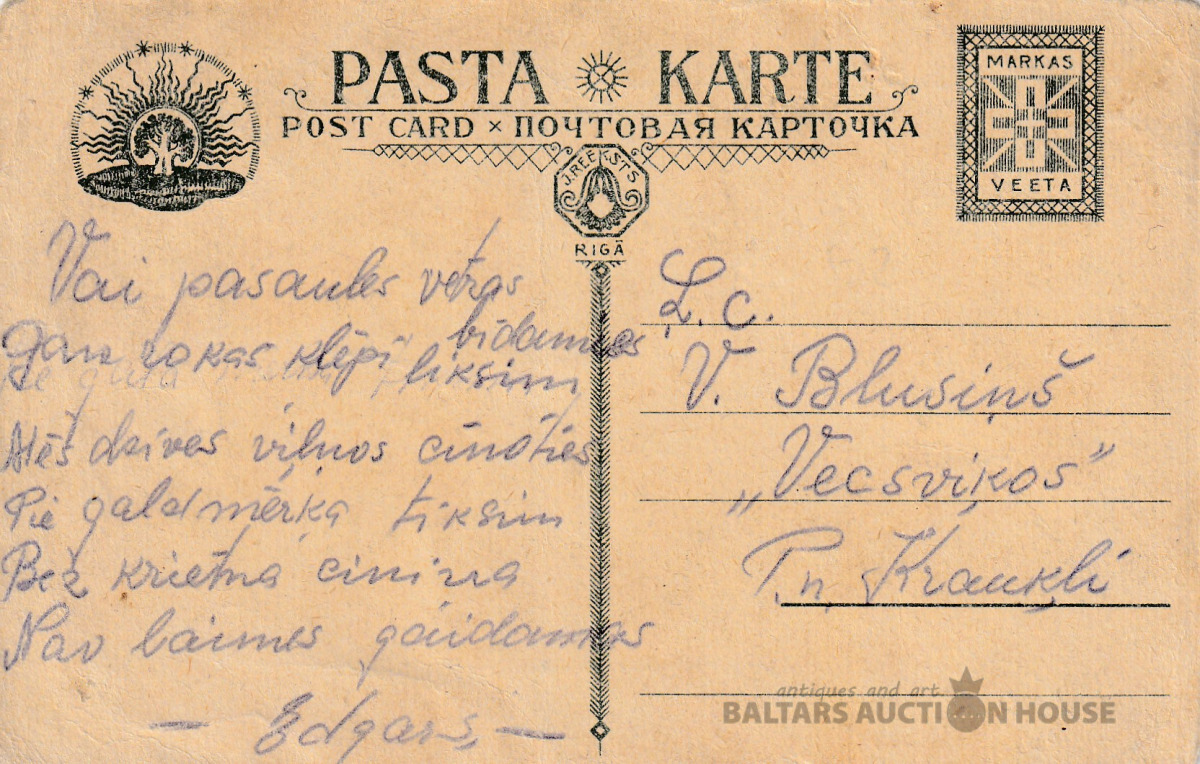 PASTA KARTE
POST CARD × ПОЧТОВАЯ КАРТОЧКА
MARKAS
VEETA
J. REEKSTS
RIGĀ
Vai pasaules vētras bīdamies
Gan rokas klēpī liksim
Mēs dzives viļņos cīnoties
Pie galamērķa tiksim
Bez krietna
Nav laimes gaidamas
— Edgars, —
Ļ. c.
V. Blusiņš
„Vecsviķos"
P. n. Kraukļi
antiques and art
BALTARS AUCTION HOUSE